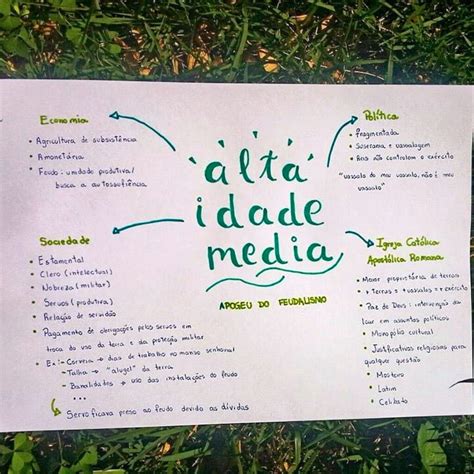 alta
idade
media
APOGEU DO FEUDALISMO
Economia
• Agricultura de subsistência
• Amonetária
• Feudo: unidade produtiva/
busca a autossuficiência
Política
• Fragmentada
• Suserania e vassalagem
• Reis não controlam o exército
"vassalo do meu vassalo, não é meu
vassalo"
Sociedade
• Estamental
• Clero (intelectual)
• Nobreza (militar)
• Servos (produtiva)
• Relação de servidão
• Pagamento de obrigações pelos servos em
troca do uso da terra e da proteção militar
• Ex: - Corveia → dias de trabalho no manso senhorial
- Talha → "aluguel" da terra
- Banalidades → uso das instalações do feudo
...
Servo ficava preso ao feudo devido as dívidas
Igreja Católica
Apostólica Romana
• Maior proprietária de terras
• + Terras = + vassalos = + exército
• Paz de Deus: intervenção da
Icar em assuntos políticos
• Monopólio cultural
• Justificativas religiosas para
qualquer questão
• Mosteiro
• Latim
• Celibato